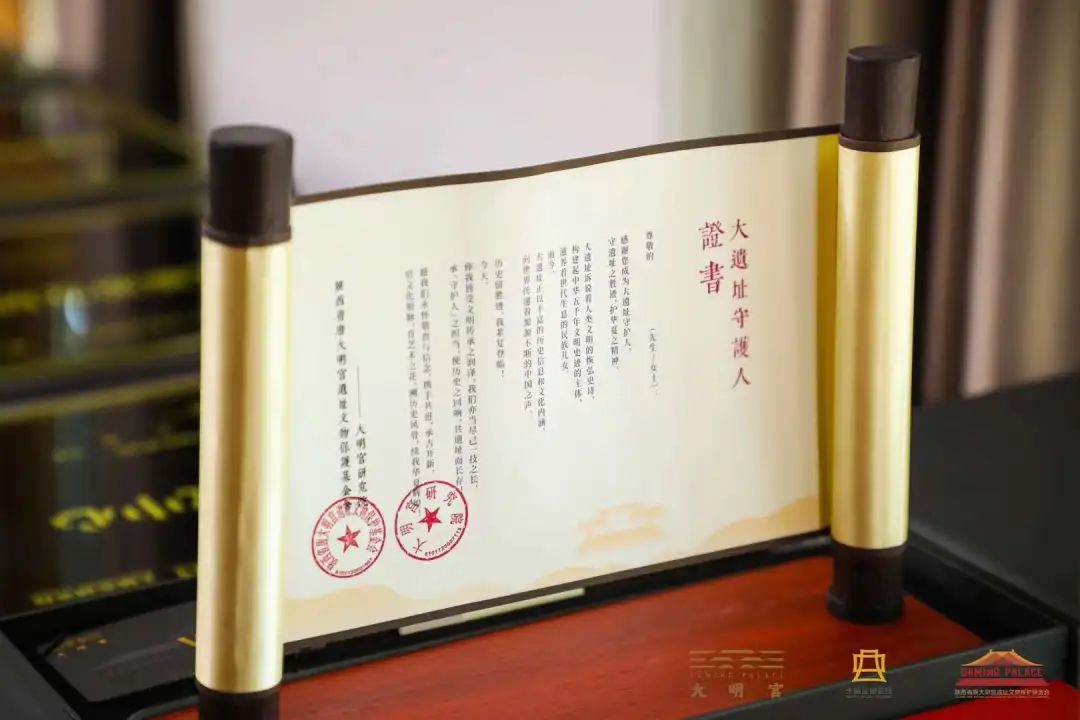 大遺址守護人
證書
尊敬的
(先生/女士):
感谢您成为大遗址守护人,
守遗址之胜迹,护华夏之精神。
大遗址诉说着人类文明的恢弘史诗,
构建起中华五千年文明史迹的主体,
滋养着世代生息的民族儿女。
而今,
大遗址正以丰富的历史信息和文化内涵,
向世界传递着源源不断的中国之声。
历史留胜迹,我辈复登临!
今天,
你我接受文明传承之润泽,我们亦当尽己一技之长,
承"守护人"之担当,使历史之回响,共遗址而长存。
愿我们永怀敬畏与信念,携手共进,承古开新,
培文化根脉,育艺术之花,溯历史风骨,续我华夏
大明宫研究院
陕西省唐大明宫遗址文物保護基金會
大明宫研究院
陕西省唐大明宫遗址文物保护基金会
DAMING PALACE
大明宫
大明宫研究院
DAMING PALACE
陕西省唐大明宫遗址文物保护基金会